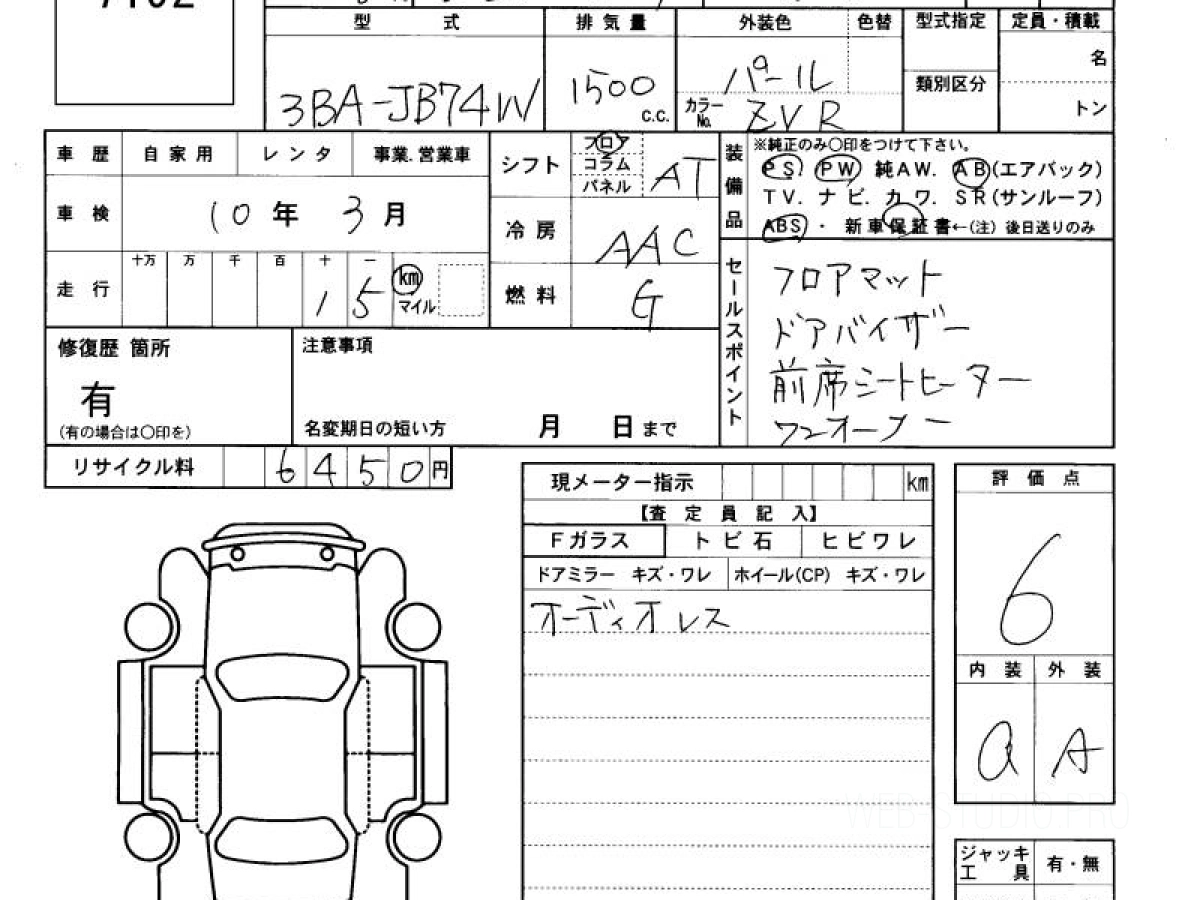 型 式 排気量 外装色 色替 型式指定 定員・積載
3BA-JB74W 1500 c.c. パール 名
類別区分
カラーNo. ZVR トン
車歴 自家用 レンタ 事業.営業車
シフト フロア コラム パネル AT
装備品 ※純正のみ〇印をつけて下さい。
PS. PW 純AW. AB(エアバック)
TV. ナビ. カワ. SR(サンルーフ)
ABS ・ 新車保証書←(注) 後日送りのみ
車検 10年 3月
冷房 AAC
走行 十万 万 千 百 十 一
1 5 km マイル
燃料 G
セールスポイント
フロアマット
ドアバイザー
前席シートヒーター
ワンオーナー
修復歴 箇所
有
(有の場合は〇印を)
注意事項
名変期日の短い方 月 日まで
リサイクル料 6450円
現メーター指示 km
【査定員記入】
Fガラス トビ石 ヒビワレ
ドアミラー キズ・ワレ ホイール(CP) キズ・ワレ
オーディオレス
評価点
6
内装 外装
a A
WEB-STUDIO.PRO
ジャッキ工具 有・無